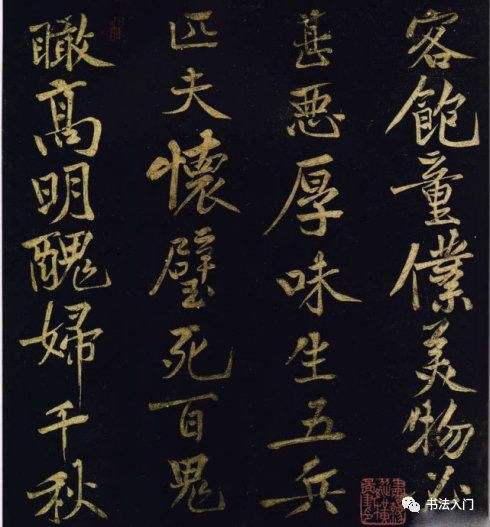 客飽童僕美物必
甚惡厚味生五兵
匹夫懷璧死百鬼
瞰髙明醜婦千秋
书法入门